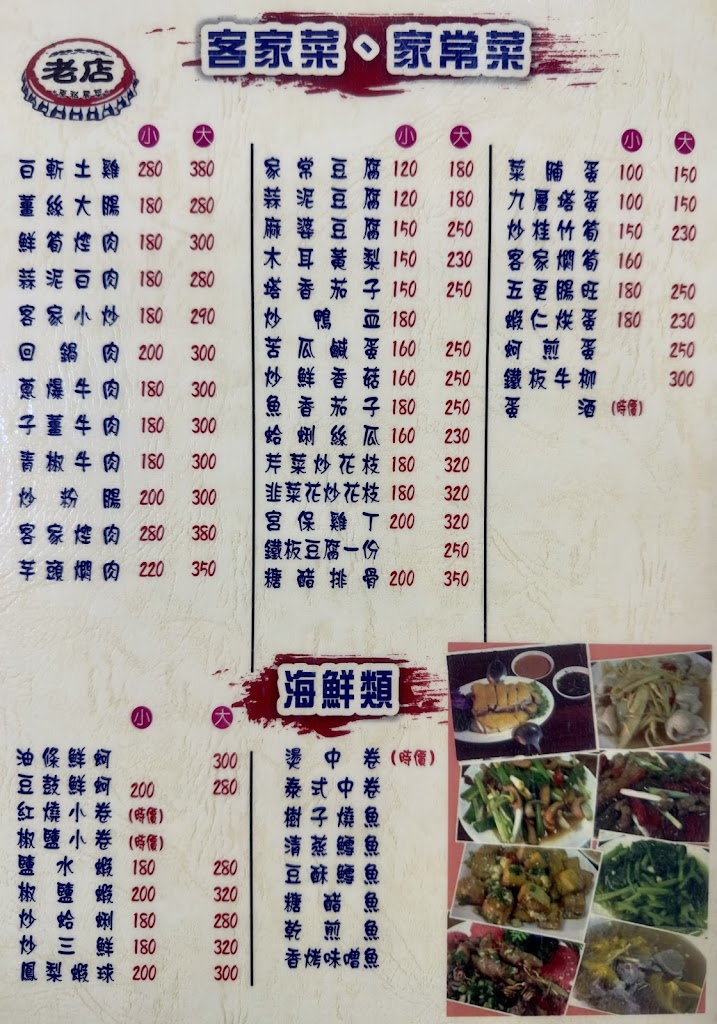 老店
客家菜、家常菜
小 大
白斬土雞 280 380
薑絲大腸 180 280
鮮筍焢肉 180 300
蒜泥白肉 180 280
客家小炒 180 290
回鍋肉 200 300
蔥爆牛肉 180 300
子薑牛肉 180 300
青椒牛肉 180 300
炒粉腸 200 300
客家焢肉 280 380
芋頭燜肉 220 350
小 大
家常豆腐 120 180
蒜泥豆腐 120 180
麻婆豆腐 150 250
木耳黃梨 150 230
塔香茄子 150 250
炒鴨血 180
苦瓜鹹蛋 160 250
炒鮮香菇 160 250
魚香茄子 180 250
蛤蜊絲瓜 160 230
芹菜炒花枝 180 320
韭菜花炒花枝 180 320
宮保雞丁 200 320
鐵板豆腐一份 250
糖醋排骨 200 350
小 大
菜脯蛋 100 150
九層塔蛋 100 150
炒桂竹筍 150 230
客家燜筍 160
五更腸旺 180 250
蝦仁烘蛋 180 230
蚵煎蛋 250
鐵板牛柳 300
蛋酒 (時價)
海鮮類
小 大
油條鮮蚵 300
豆鼓鮮蚵 200 280
紅燒小卷 (時價)
椒鹽小卷 (時價)
鹽水蝦 180 280
椒鹽蝦 200 320
炒蛤蜊 180 280
炒三鮮 180 320
鳳梨蝦球 200 300
燙中卷 (時價)
泰式中卷
樹子燒魚
清蒸鱈魚
豆酥鱈魚
糖醋魚
乾煎魚
香烤味噌魚